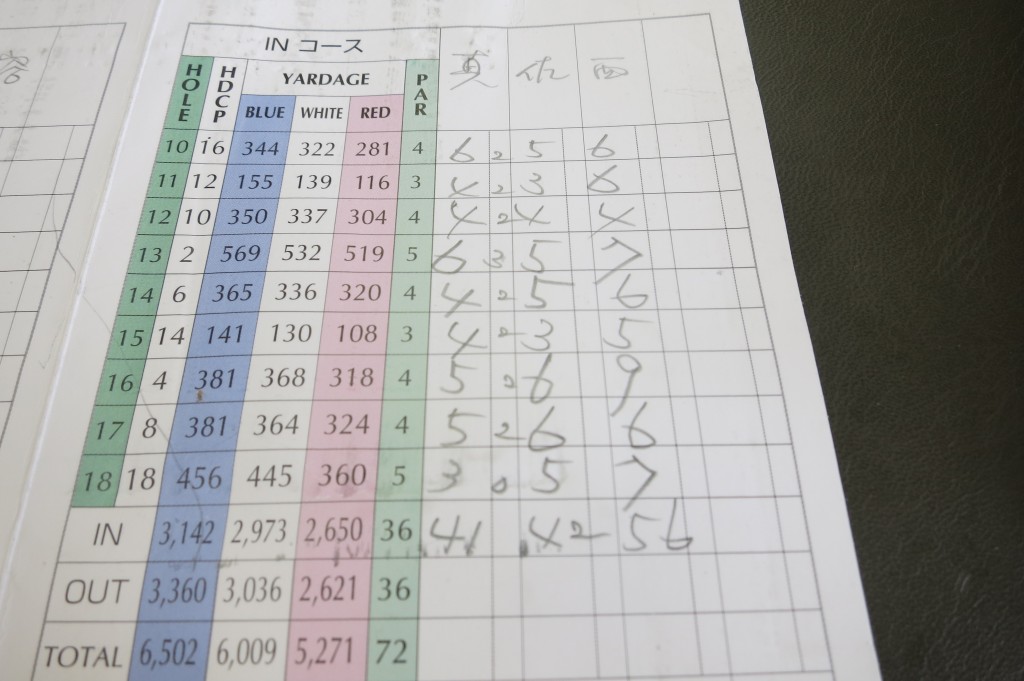 IN コース
HOLE HDCP YARDAGE PAR 真 佐 西
BLUE WHITE RED
10 16 344 322 281 4 6 2 5 6
11 12 155 139 116 3 4 2 3 6
12 10 350 337 304 4 4 2 4 4
13 2 569 532 519 5 6 3 5 7
14 6 365 336 320 4 4 2 5 6
15 14 141 130 108 3 4 2 3 5
16 4 381 368 318 4 5 2 6 9
17 8 381 364 324 4 5 2 6 6
18 18 456 445 360 5 3 0 5 7
IN 3,142 2,973 2,650 36 41 42 56
OUT 3,360 3,036 2,621 36
TOTAL 6,502 6,009 5,271 72